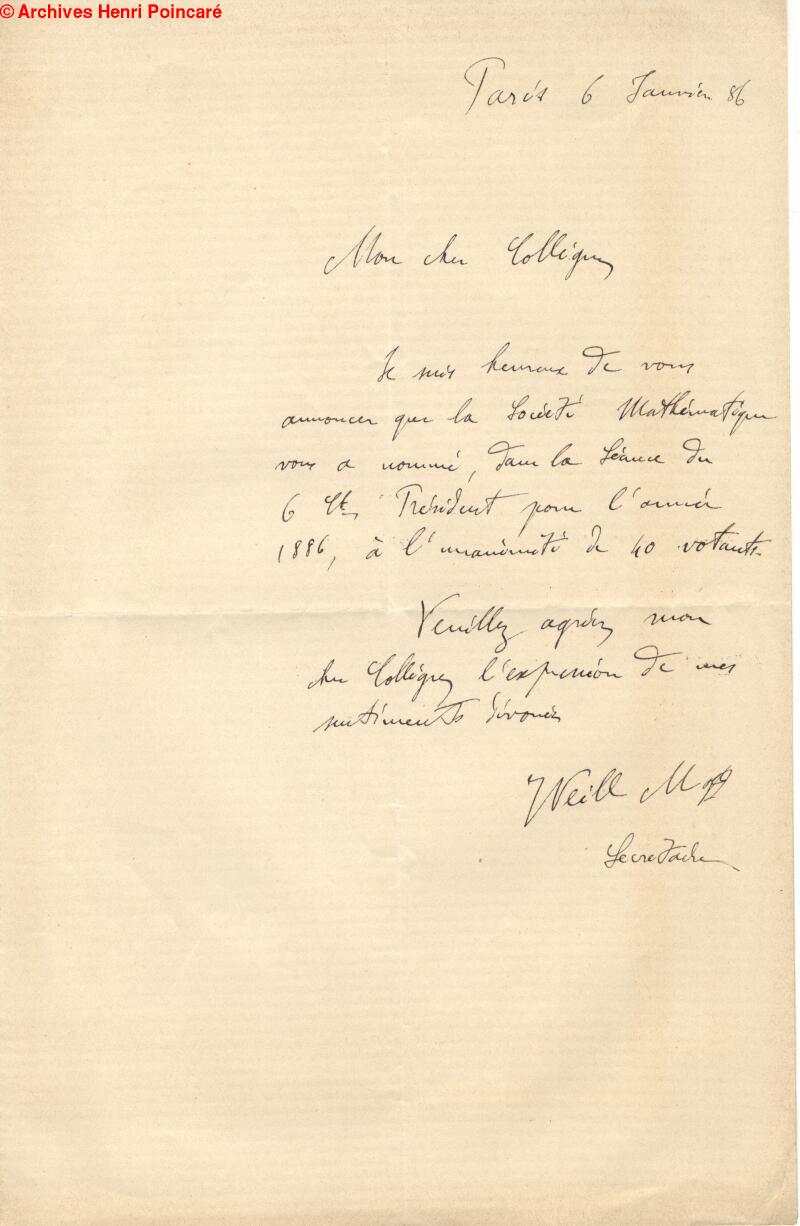 © Archives Henri Poincaré
Paris 6 Janvier 86
Mon cher Collègue
Je suis heureux de vous
annoncer que la Société Mathématique
vous a nommé, dans la Séance du
6 Ct, Président pour l'année
1886, à l'unanimité de 40 votants.
Veuillez agréer, mon
cher Collègue, l'expression de mes
sentiments dévoués
Weill
Secretaire